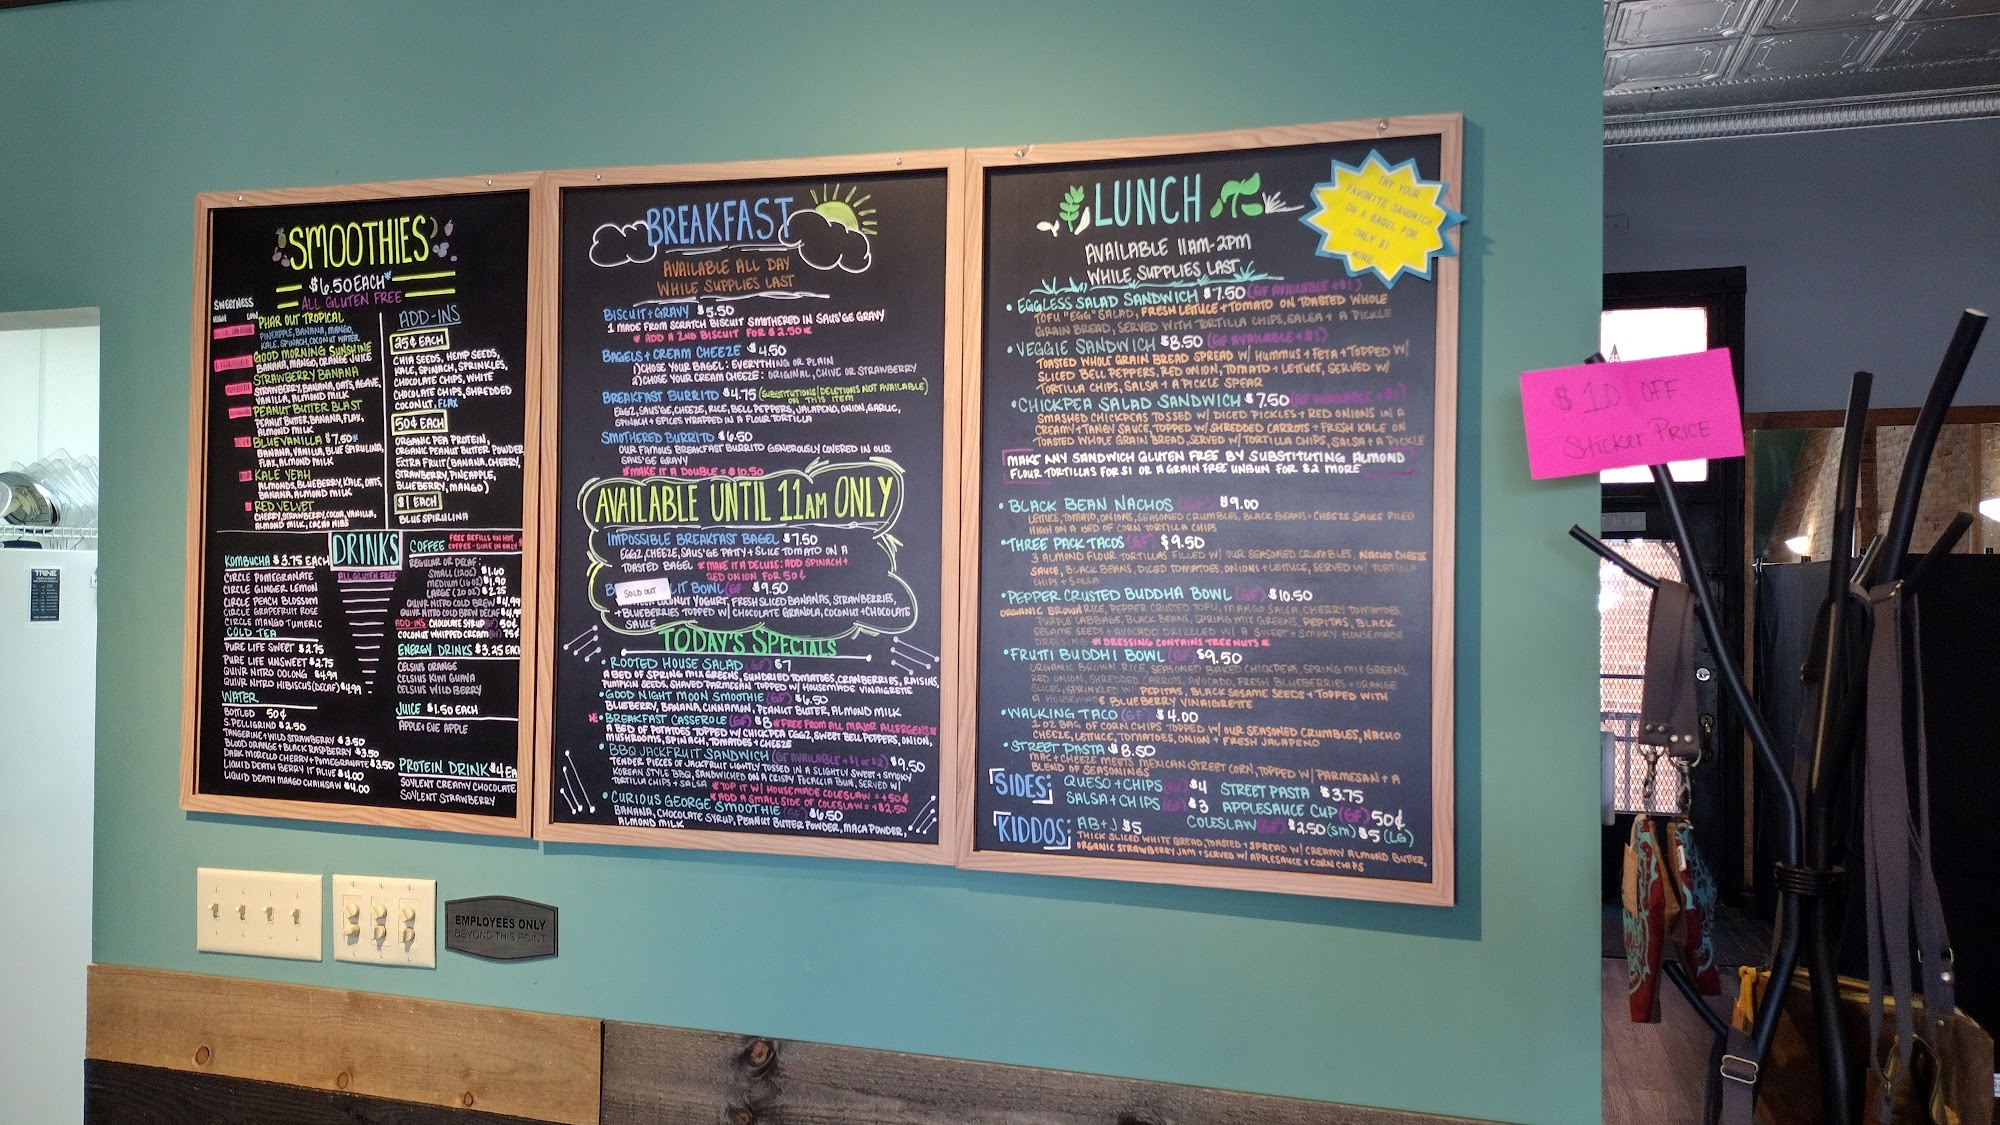 SMOOTHIES
$6.50 EACH*
ALL GLUTEN FREE
SWEETNESS
HIGH LOW
PHAR OUT TROPICAL
PINEAPPLE, BANANA, MANGO,
KALE, SPINACH, COCONUT WATER
GOOD MORNING SUNSHINE
BANANA, MANGO, ORANGE JUICE
STRAWBERRY BANANA
STRAWBERRY, BANANA, OATS, AGAVE,
VANILLA, ALMOND MILK
PEANUT BUTTER BLAST
PEANUT BUTTER, BANANA, FLAX,
ALMOND MILK
BLUE VANILLA $7.50*
BANANA, VANILLA, BLUE SPIRULINA,
FLAX, ALMOND MILK
KALE YEAH
ALMONDS, BLUEBERRY, KALE, OATS,
BANANA, ALMOND MILK
RED VELVET
CHERRY, STRAWBERRY, COCOA, VANILLA,
ALMOND MILK, CACAO NIBS
ADD-INS
25¢ EACH
CHIA SEEDS, HEMP SEEDS,
KALE, SPINACH, SPRINKLES,
CHOCOLATE CHIPS, WHITE
CHOCOLATE CHIPS, SHREDDED
COCONUT, FLAX
50¢ EACH
ORGANIC PEA PROTEIN,
ORGANIC PEANUT BUTTER POWDER
EXTRA FRUIT (BANANA, CHERRY,
STRAWBERRY, PINEAPPLE,
BLUEBERRY, MANGO)
$1 EACH
BLUE SPIRULINA
DRINKS
ALL GLUTEN FREE
KOMBUCHA $3.75 EACH
CIRCLE POMEGRANATE
CIRCLE GINGER LEMON
CIRCLE PEACH BLOSSOM
CIRCLE GRAPEFRUIT ROSE
CIRCLE MANGO TUMERIC
COLD TEA
PURE LIFE SWEET $2.75
PURE LIFE UNSWEET $2.75
QUIVR NITRO OOLONG $4.99
QUIVR NITRO HIBISCUS (DECAF) $4.99
WATER
BOTTLED 50¢
S.PELLIGRIND $2.50
TANGERINE + WILD STRAWBERRY $3.50
BLOOD ORANGE + BLACK RASPBERRY $3.50
DARK MORELLO CHERRY + POMEGRANATE $3.50
LIQUID DEATH BERRY IT ALIVE $4.00
LIQUID DEATH MANGO CHAINSAW $4.00
COFFEE FREE REFILLS ON HOT
COFFEE - DINE IN ONLY
REGULAR OR DECAF
SMALL (12OZ) $1.60
MEDIUM (16 OZ) $1.90
LARGE (20 OZ) $2.25
QUIVR NITRO COLD BREW $4.99
QUIVR NITRO COLD BREW DECAF
ADD-INS: CHOCOLATE SYRUP (GF) 50¢
COCONUT WHIPPED CREAM (GF) 75¢
ENERGY DRINKS $3.25 EACH
CELSIUS ORANGE
CELSIUS KIWI GUAVA
CELSIUS WILD BERRY
JUICE $1.50 EACH
APPLE + EVE APPLE
PROTEIN DRINK $4 EA
SOYLENT CREAMY CHOCOLATE
SOYLENT STRAWBERRY
BREAKFAST
AVAILABLE ALL DAY
WHILE SUPPLIES LAST
BISCUIT + GRAVY $5.50
1 MADE FROM SCRATCH BISCUIT SMOTHERED IN SAUS'GE GRAVY
* ADD A 2ND BISCUIT FOR $2.50 *
BAGELS + CREAM CHEEZE $4.50
1) CHOSE YOUR BAGEL: EVERYTHING OR PLAIN
2) CHOSE YOUR CREAM CHEEZE: ORIGINAL, CHIVE OR STRAWBERRY
BREAKFAST BURRITO $4.75 (SUBSTITUTIONS/DELETIONS NOT AVAILABLE)
ON THIS ITEM
EGGZ, SAUS'GE, CHEEZE, RICE, BELL PEPPERS, JALAPENO, ONION, GARLIC,
SPINACH + SPICES WRAPPED IN A FLOUR TORTILLA
SMOTHERED BURRITO $6.50
OUR FAMOUS BREAKFAST BURRITO GENEROUSLY COVERED IN OUR
SAUS'GE GRAVY
*MAKE IT A DOUBLE = $10.50
AVAILABLE UNTIL 11AM ONLY
IMPOSSIBLE BREAKFAST BAGEL $7.50
EGGZ, CHEEZE, SAUS'GE PATTY + SLICE TOMATO ON A
TOASTED BAGEL *MAKE IT A DELUXE: ADD SPINACH +
RED ONION FOR 50¢
B SOLD OUT LIT BOWL (GF $9.50
COCONUT YOGURT, FRESH SLICED BANANAS, STRAWBERRIES,
+ BLUEBERRIES TOPPED W/ CHOCOLATE GRANOLA, COCONUT + CHOCOLATE
SAUCE
TODAY'S SPECIALS
• ROOTED HOUSE SALAD (GF) $7
A BED OF SPRING MIX GREENS, SUNDRIED TOMATOES, CRANBERRIES, RAISINS,
PUMPKIN SEEDS, SHAVED PARMESAN TOPPED W/ HOUSEMADE VINAIGRETTE
• GOOD NIGHT MOON SMOOTHIE (GF) $6.50
BLUEBERRY, BANANA, CINNAMON, PEANUT BUTTER, ALMOND MILK
*• BREAKFAST CASSEROLE (GF) $8 *FREE FROM ALL MAJOR ALLERGENS*
A BED OF POTATOES TOPPED W/ CHICKPEA EGGZ, SWEET BELL PEPPERS, ONION,
MUSHROOMS, SPINACH, TOMATOES + CHEEZE
• BBQ JACKFRUIT SANDWICH (GF AVAILABLE +$1 OR $2) $9.50
TENDER PIECES OF JACKFRUIT LIGHTLY TOSSED IN A SLIGHTLY SWEET + SMOKY
KOREAN STYLE BBQ, SANDWICHED ON A CRISPY FOCACCIA BUN, SERVED W/
TORTILLA CHIPS + SALSA *TOP IT W/ HOUSEMADE COLESLAW = +50¢
*ADD A SMALL SIDE OF COLESLAW = +$2.50
• CURIOUS GEORGE SMOOTHIE (GF) $6.50
BANANA, CHOCOLATE SYRUP, PEANUT BUTTER POWDER, MACA POWDER,
ALMOND MILK
LUNCH
AVAILABLE 11AM-2PM
WHILE SUPPLIES LAST
TRY YOUR
FAVORITE SANDWICH
ON A BAGEL FOR
ONLY $1
MORE
• EGGLESS SALAD SANDWICH $7.50 (GF AVAILABLE +$1)
TOFU "EGG" SALAD, FRESH LETTUCE + TOMATO ON TOASTED WHOLE
GRAIN BREAD, SERVED WITH TORTILLA CHIPS, SALSA + A PICKLE
• VEGGIE SANDWICH $8.50 (GF AVAILABLE +$1)
TOASTED WHOLE GRAIN BREAD SPREAD W/ HUMMUS + FETA + TOPPED W/
SLICED BELL PEPPERS, RED ONION, TOMATO + LETTUCE, SERVED W/
TORTILLA CHIPS, SALSA + A PICKLE SPEAR
• CHICKPEA SALAD SANDWICH $7.50 (GF AVAILABLE +$1)
SMASHED CHICKPEAS TOSSED W/ DICED PICKLES + RED ONIONS IN A
CREAMY + TANGY SAUCE, TOPPED W/ SHREDDED CARROTS + FRESH KALE ON
TOASTED WHOLE GRAIN BREAD, SERVED W/ TORTILLA CHIPS, SALSA + A PICKLE
MAKE ANY SANDWICH GLUTEN FREE BY SUBSTITUTING ALMOND
FLOUR TORTILLAS FOR $1 OR A GRAIN FREE UNBUN FOR $2 MORE
• BLACK BEAN NACHOS (GF) $9.00
LETTUCE, TOMATO, ONIONS, SEASONED CRUMBLES, BLACK BEANS + CHEEZE SAUCE PILED
HIGH ON A BED OF CORN TORTILLA CHIPS
• THREE PACK TACOS (GF) $9.50
3 ALMOND FLOUR TORTILLAS FILLED W/ OUR SEASONED CRUMBLES, NACHO CHEEZE
SAUCE, BLACK BEANS, DICED TOMATOES, ONIONS + LETTUCE, SERVED W/ TORTILLA
CHIPS + SALSA
• PEPPER CRUSTED BUDDHA BOWL (GF) $10.50
ORGANIC BROWN RICE, PEPPER CRUSTED TOFU, MANGO SALSA, CHERRY TOMATOES,
PURPLE CABBAGE, BLACK BEANS, SPRING MIX GREENS, PEPITAS, BLACK
SESAME SEEDS + AVOCADO DRIZZLED W/ A SWEET + SMOKY HOUSEMADE
DRESSING *DRESSING CONTAINS TREE NUTS*
• FRUTTI BUDDHI BOWL (GF) $9.50
ORGANIC BROWN RICE, SEASONED BAKED CHICKPEAS, SPRING MIX GREENS,
RED ONION, SHREDDED CARROTS, AVOCADO, FRESH BLUEBERRIES + ORANGE
SLICES, SPRINKLED W/ PEPITAS, BLACK SESAME SEEDS + TOPPED WITH
A HOUSEMADE BLUEBERRY VINAIGRETTE
• WALKING TACO (GF) $4.00
1 OZ BAG OF CORN CHIPS TOPPED W/ OUR SEASONED CRUMBLES, NACHO
CHEEZE, LETTUCE, TOMATOES, ONION + FRESH JALAPENO
• STREET PASTA $8.50
MAC + CHEEZE MEETS MEXICAN STREET CORN, TOPPED W/ PARMESAN + A
BLEND OF SEASONINGS
SIDES: QUESO + CHIPS (GF) $4 STREET PASTA $3.75
SALSA + CHIPS (GF) $3 APPLESAUCE CUP (GF) 50¢
COLESLAW (GF) $2.50 (SM) $5 (LG)
KIDDOS: AB+J $5
THICK SLICED WHITE BREAD, TOASTED + SPREAD W/ CREAMY ALMOND BUTTER,
ORGANIC STRAWBERRY JAM + SERVED W/ APPLESAUCE + CORN CHIPS
$10 OFF
Sticker PRICE
EMPLOYEES ONLY
BEYOND THIS POINT
TRINE